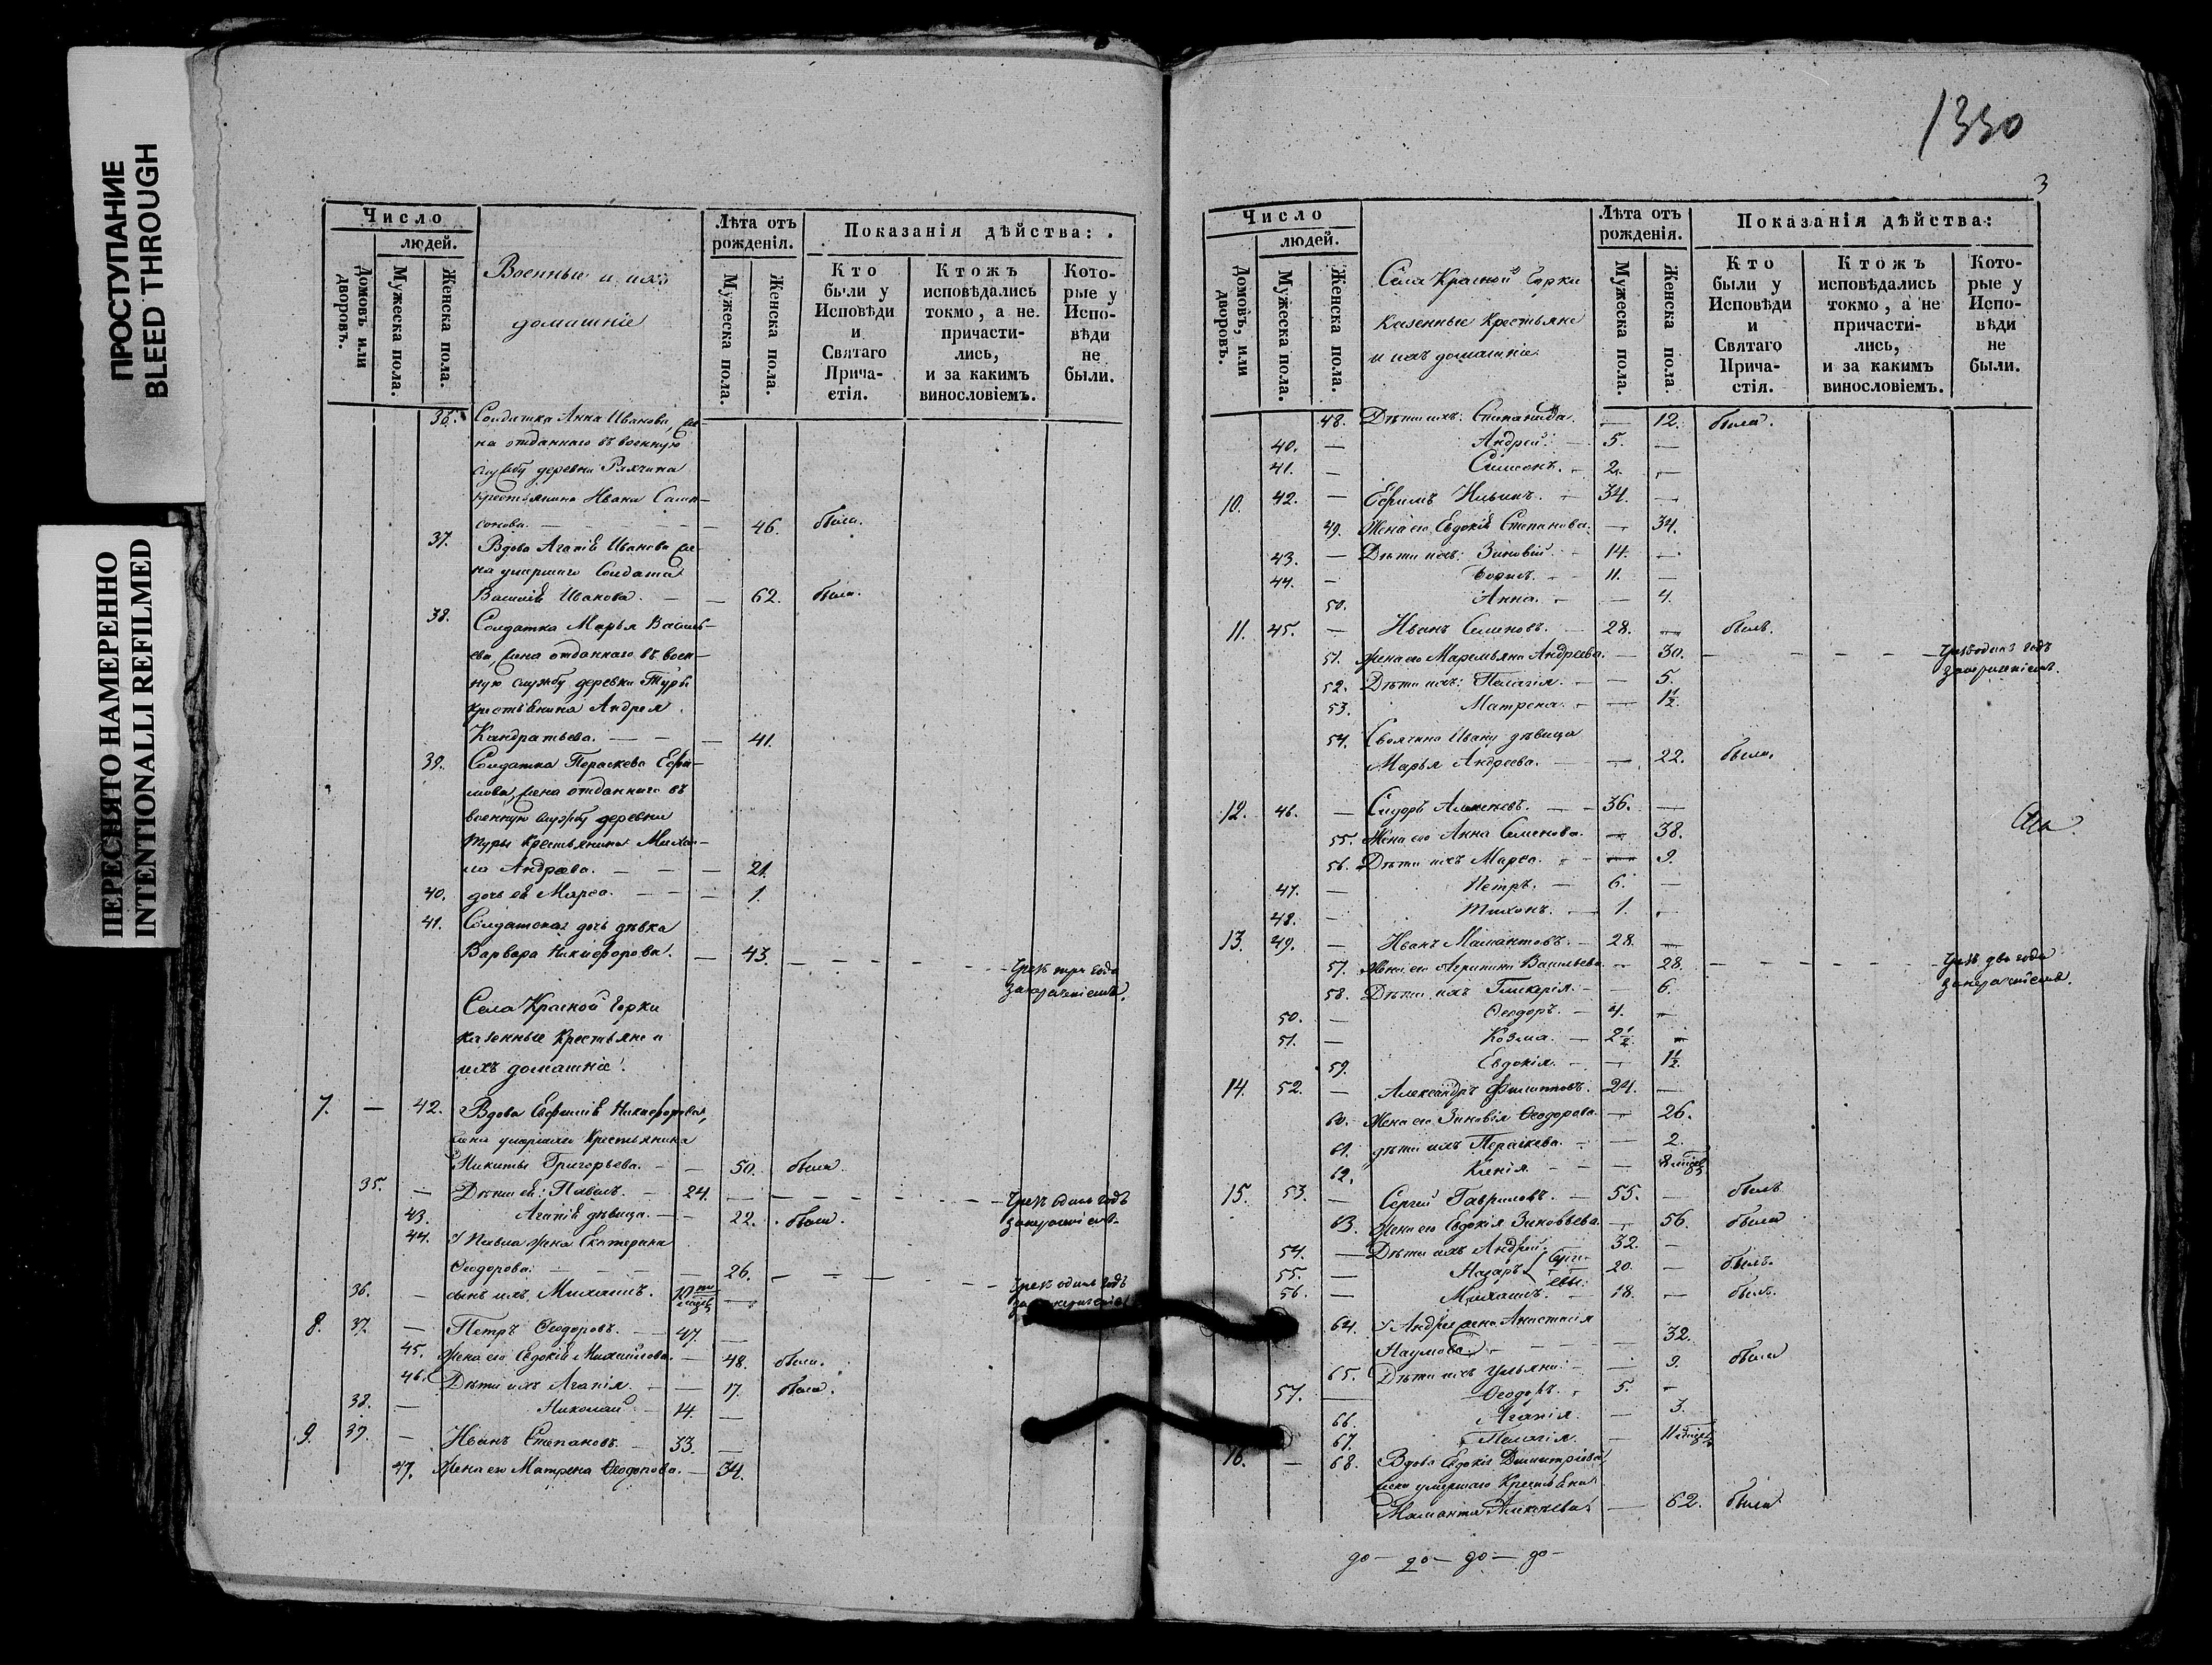 ПРОСТУПАНИЕ
BLEED THROUGH
ПЕРЕСНЯТО НАМЕРЕННО
INTENTIONALLI REFILMED
Число
людей.
Домовъ или дворовъ.
Мужеска пола.
Женска пола.
Военные и ихъ
домашніе
Лѣта отъ рожденія.
Мужеска пола.
Женска пола.
Показанія дѣйства:
Кто были у Исповѣди и Святаго Причастія.
Ктожъ исповѣдались токмо, а не причастились, и за какимъ винословіемъ.
Которые у Исповѣди не были.
36. Солдатка Анна Иванова, же-
на отданнаго въ военную
службу деревни
крестьянина Ивана Самп-
сонова. — 46. была.
37. Вдова Агапія Иванова же-
на умершаго Солдата
Василія Иванова. — 62. была.
38. Солдатка Марья Василь-
ева, жена отданнаго въ воен-
ную службу деревни Туры
крестьянина Андрея
Кандратьева. — 41.
39. Солдатка Параскева Ефи-
мова, жена отданнаго въ
военную службу деревни
Туры крестьянина Михаи-
ла Андреева. — 21.
40. дочь ея Марѳа. — 1.
41. Солдатская дочь дѣвка
Варвара Никифорова. — 43. — Чрезъ три года
за нераченіемъ.
Села Красной Горки
казенные Крестьяне и
ихъ домашніе.
7. — 42. Вдова Евфимія Никифорова,
жена умершаго Крестьянина
Никиты Григорьева. — 50. была.
35. — Дѣти ея: Павелъ. — 24. — Чрезъ одинъ годъ
за нераченіемъ.
43. Агапія дѣвица. — 22. была.
44. У Павла жена Екатерина
Ѳеодорова. — 26. — Чрезъ одинъ годъ
36. — сынъ ихъ Михаилъ. 10ти
8. 37. — Петръ Ѳеодоровъ. — 47. —
45. Жена его Евдокія Михайлова. — 48. была.
46. Дѣти ихъ Агапія. — 17. была.
38. — Николай — 14. —
9. 39. — Иванъ Степановъ. — 33. —
47. Жена его Матрена Ѳеодорова. — 34.
1330
3
Число
людей.
Домовъ, или дворовъ.
Мужеска пола.
Женска пола.
Села Красной Горки
казенные Крестьяне
и ихъ домашніе.
Лѣта отъ рожденія.
Мужеска пола.
Женска пола.
Показанія дѣйства:
Кто были у Исповѣди и Святаго Причастія.
Ктожъ исповѣдались токмо, а не причастились, и за какимъ винословіемъ.
Которые у Исповѣди не были.
48. Дѣти ихъ: Степанида. — 12. была.
40. — Андрей. — 5. —
41. — Симеонъ. — 2. —
10. 42. — Ефимъ Ильинъ. — 34. —
49. Жена его Евдокія Степанова. — 34.
43. — Дѣти ихъ: Зиновій — 14. —
44. — Борисъ. — 11. —
50. Анна. — 4.
11. 45. — Иванъ Семеновъ. — 28. — былъ.
51. Жена его Маремьяна Андреева. — 30. — Чрезъ одинъ годъ
за нераченіемъ.
52. Дѣти ихъ: Пелагія. — 5.
53. Матрена. — 1½.
54. Своячина Ивану дѣвица
Марья Андреева. — 22. была.
12. 46. — Сидоръ Алексѣевъ. — 36. —
55. Жена его Анна Семенова. — 38.
56. Дѣти ихъ Марѳа. — 9.
47. — Петръ. — 6. —
48. — Тихонъ. — 1. —
13. 49. — Иванъ Мамантовъ. — 28. —
57. Жена его Агрипина Васильева — 28. — Чрезъ два года
за нераченіемъ.
58. Дѣти ихъ Гликерія. — 6.
50. — Ѳеодоръ. — 4. —
51. — Козма. — 2½. —
59. Евдокія. — 1½.
14. 52. — Александръ Филипповъ. 24. —
60. Жена его Зиновія Ѳеодорова — 26.
61. дѣти ихъ Параскева. — 2.
62. Ксенія. — 8
15. 53. — Сергій Гавриловъ. — 55. — былъ
63. Жена его Евдокія Зиновьева. — 56. была
54. — Дѣти ихъ Андрей. 32. —
55. — Назаръ Сергѣевы: 20. — былъ.
56. — Михаилъ. — 18. — былъ.
64. У Андрея жена Анастасія
Наумова. — 32.
65. Дѣти ихъ Ульяна. — 9. была
57. — Ѳеодоръ. — 5. —
66. Агапія. — 3.
67. Пелагія. — 11
16. — 68. Вдова Евдокія Димитріева,
жена умершаго Крестьянина
Маманта Алексѣева. — 62. была.
до — до — до — до —